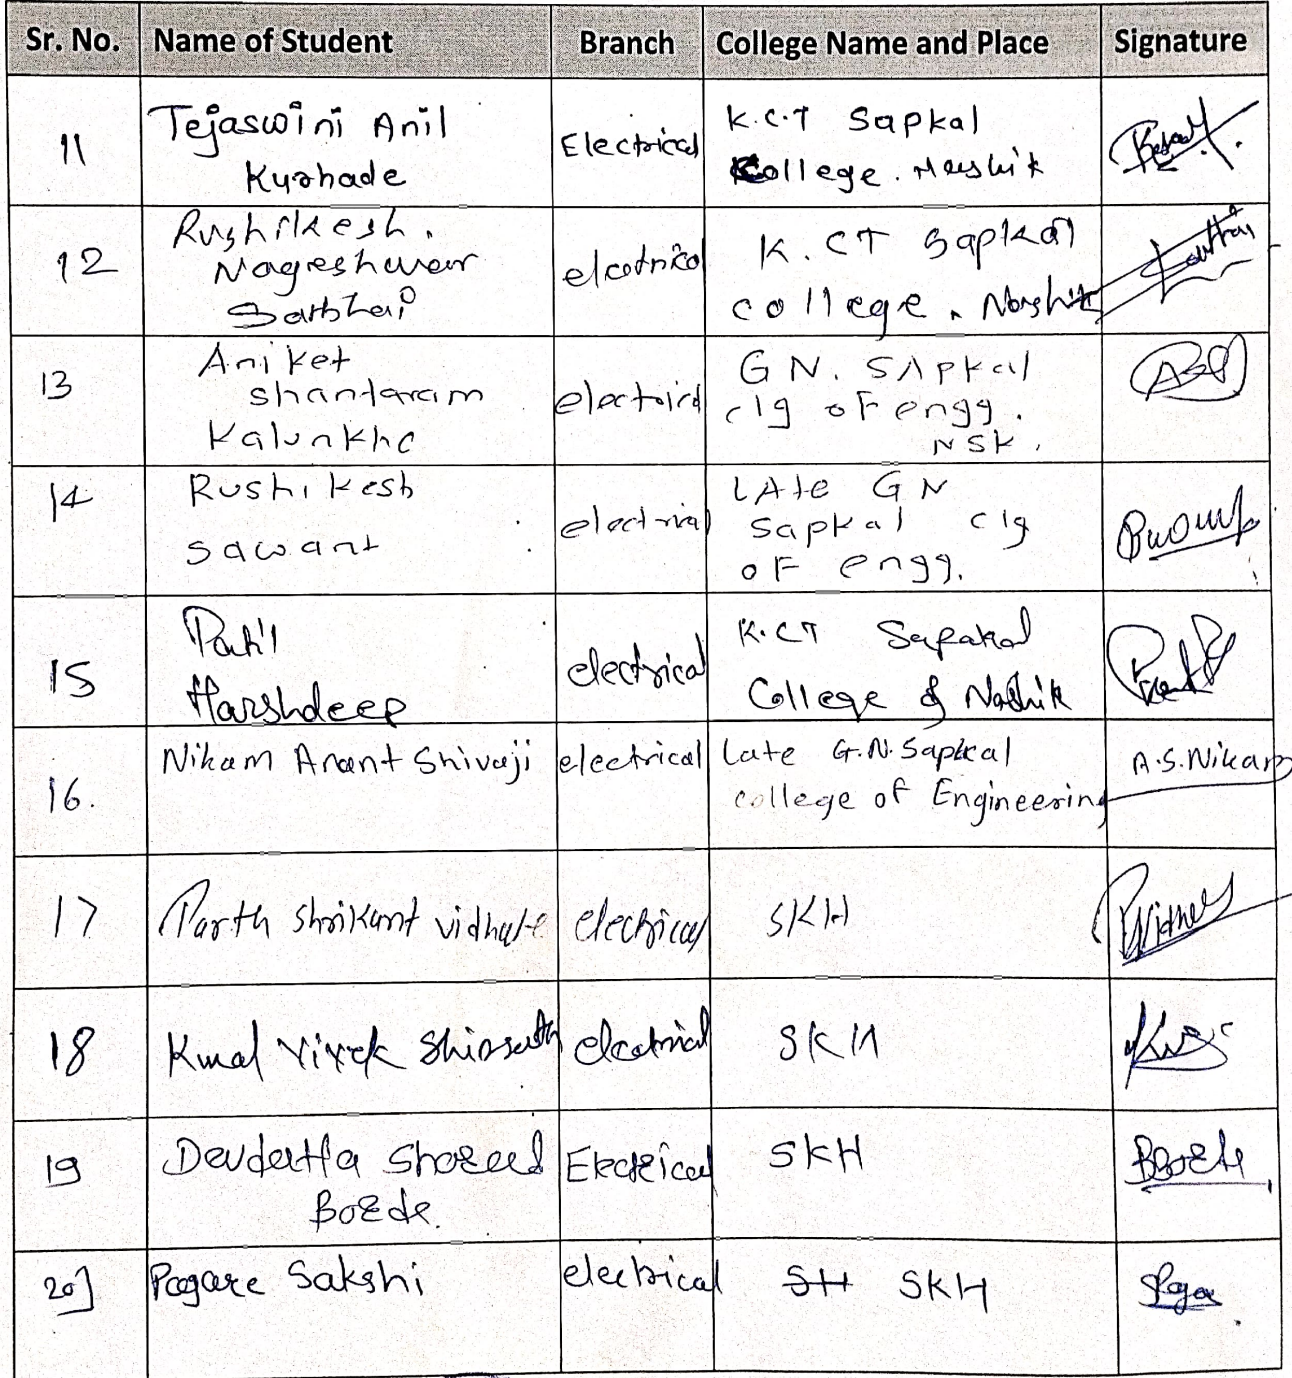 Sr. No. Name of Student Branch College Name and Place Signature
11 Tejaswini Anil Kurhade Electrical K.C.T Sapkal College. Nashik
12 Rushikesh. Nageshwar Sarbhai elcotrica K. CT Sapkal college. Nashik
13 Aniket shantaram Kalunkhe electricl G N. SApkal clg oF engg. NSK.
14 Rushikesh sawant electrial LAte GN Sapkal clg oF engg.
15 Patil Harshdeep electrical K.CT Sapakal College of Nashik
16. Nikam Anant Shivaji electrical Late G.N. Sapkal college of Engineering A.S.Nikam
17 Parth Shrikant vidhate electrical SKH
18 electrical SKH
19 Devdatta Sharad Borde. Electrical SKH
20] Pagare Sakshi electrical SH SKH